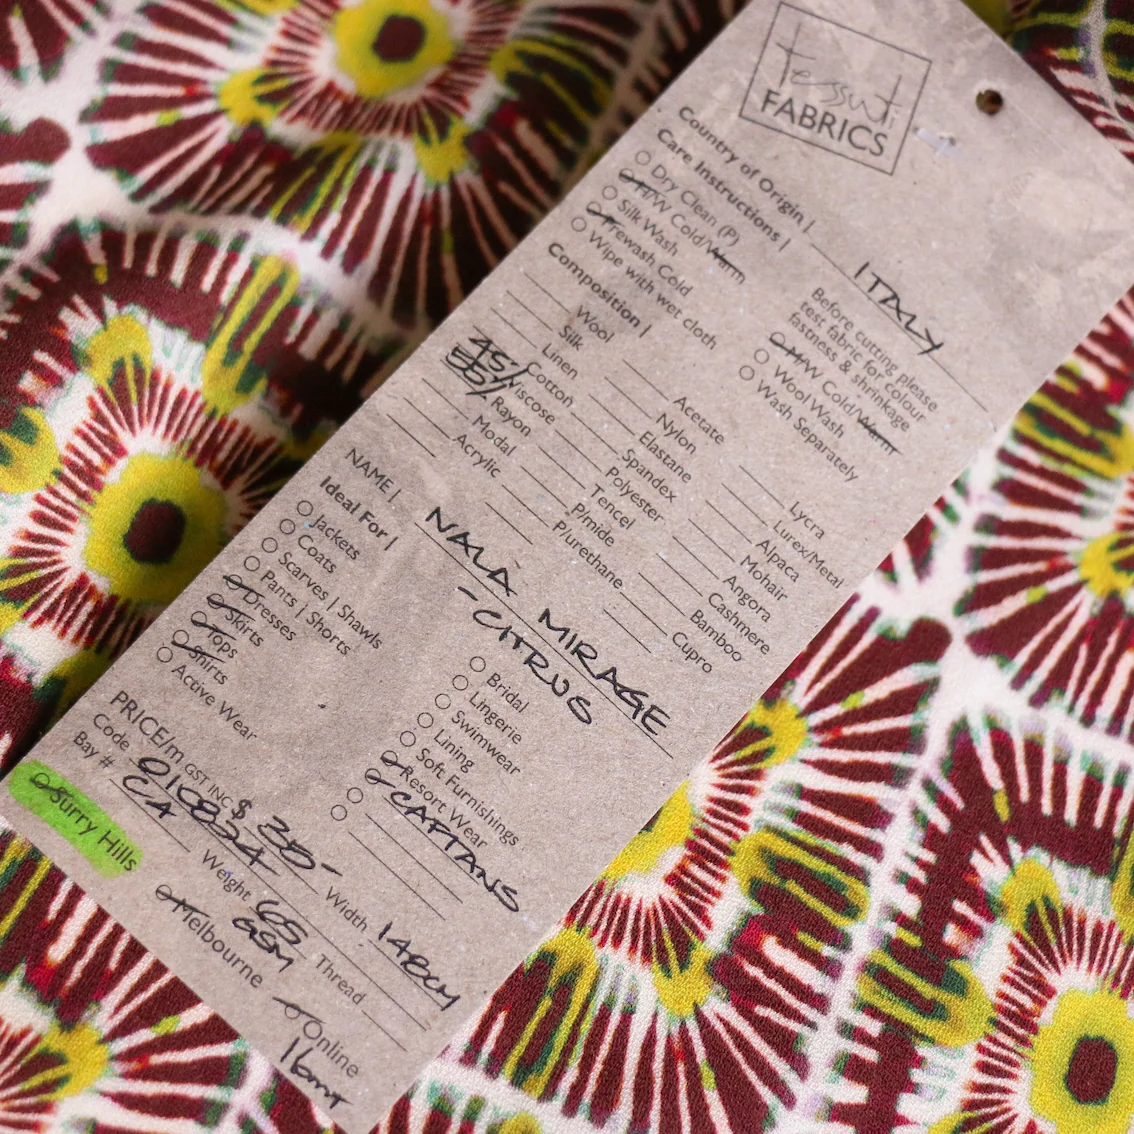 Tessuti
FABRICS
Country of Origin | ITALY
Care Instructions |
Dry Clean (P)
H/W Cold/Warm
Silk Wash
Prewash Cold
Wipe with wet cloth
Before cutting please
test fabric for colour
fastness & shrinkage
M/W Cold/Warm
Wool Wash
Wash Separately
Composition |
Wool
Silk
Linen
Cotton
45/ Viscose
55/ Rayon
Modal
Acrylic
Acetate
Nylon
Elastane
Spandex
Polyester
Tencel
P/mide
P/urethane
Lycra
Lurex/Metal
Alpaca
Mohair
Angora
Cashmere
Bamboo
Cupro
NAME | NALA MIRAGE
- CITRUS
Ideal For |
Jackets
Coats
Scarves | Shawls
Pants | Shorts
Dresses
Skirts
Tops
Shirts
Active Wear
Bridal
Lingerie
Swimwear
Lining
Soft Furnishings
Resort Wear
CAFTANS
PRICE/m GST INC $ 30-
Code 01C8224
Width 148CM
Bay # CA
Weight 65
GSM
Thread
Surry Hills
Melbourne
Online
16mt